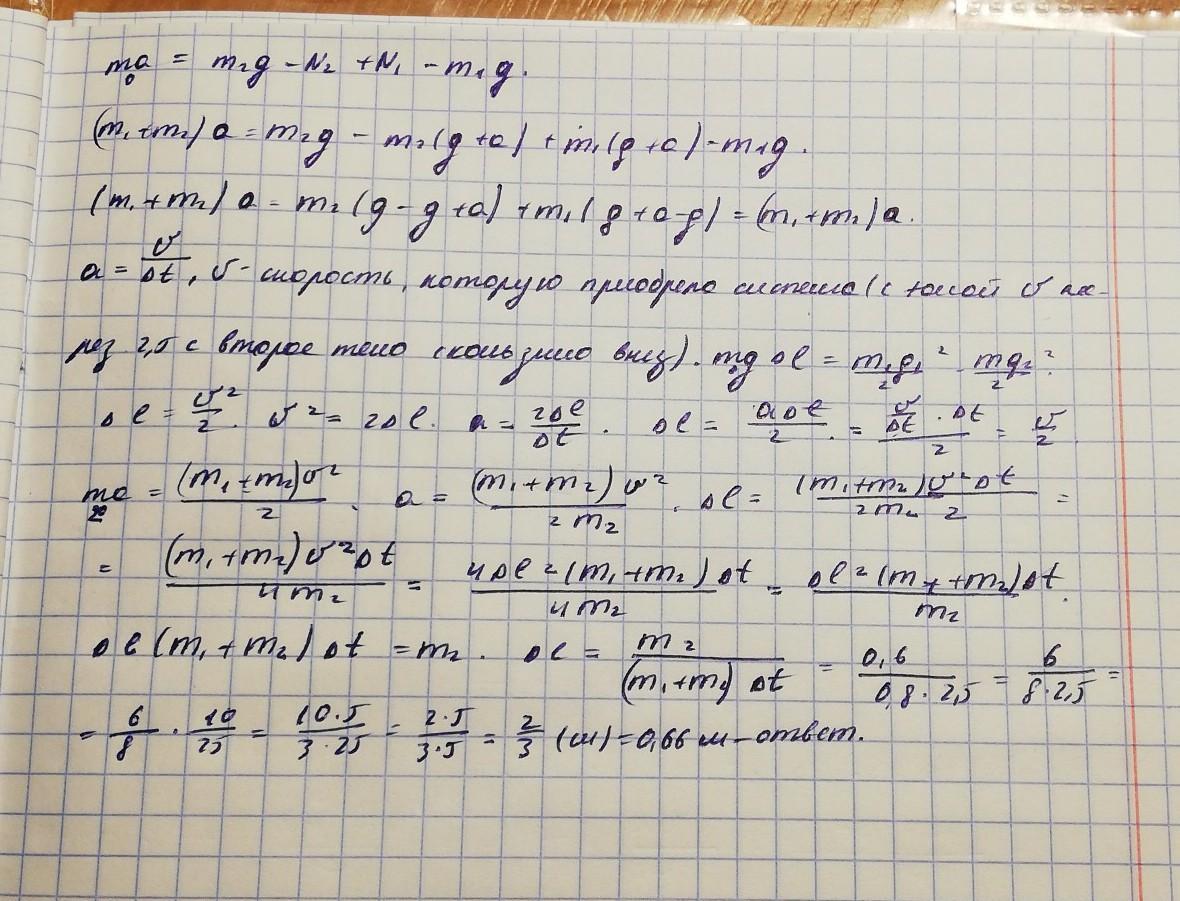 m₀a = m₂g - N₂ + N₁ - m₁g.
(m₁+m₂)a = m₂g - m₂(g+a) + m₁(g+a) - m₁g.
(m₁+m₂)a = m₂(g-g+a) + m₁(g+a-g) = (m₁+m₂)a.
a = υ/Δt, υ - скорость, которую приобрела система (с υ
рез 2,5 с второе тело скользило вниз). mg Δl = m₁g₁²/2 - mg₂²/2.
Δl = υ²/2. υ² = 2Δl. a = 2Δl/Δt. Δl = aΔt/2 = (υ/Δt · Δt)/2 = υ/2.
m₂a = (m₁+m₂)υ²/2. a = (m₁+m₂)υ²/2m₂. Δl = (m₁+m₂)υ²Δt/2m₂2 =
= (m₁+m₂)υ²Δt/4m₂ = 4Δl²(m₁+m₂)Δt/4m₂ = Δl²(m₁+m₂)Δt/m₂.
Δl(m₁+m₂)Δt = m₂. Δl = m₂/(m₁+m₂)Δt = 0,6/0,8·2,5 = 6/8·2,5 =
= 6/8 · 10/25 = 10·5/3·25 = 2·5/3·5 = 2/3 (м) = 0,66 м - ответ.